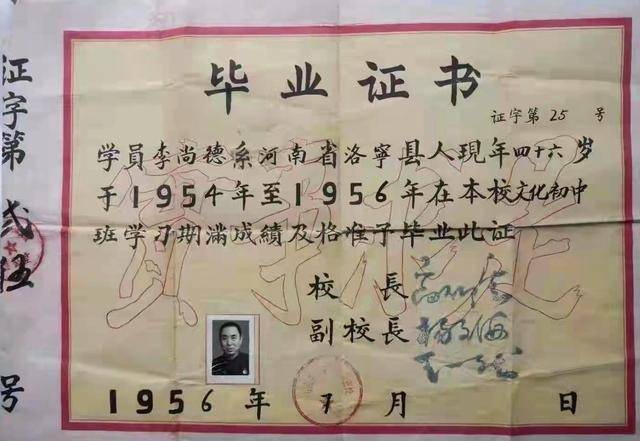 毕业证书
证字第25号
学员李尚德系河南省洛宁县人現年四十六岁
于1954年至1956年在本校文化初中
班学习期滿成績及格准予毕业此证
校長
副校長
1956年7月 日
证字第 贰伍 号